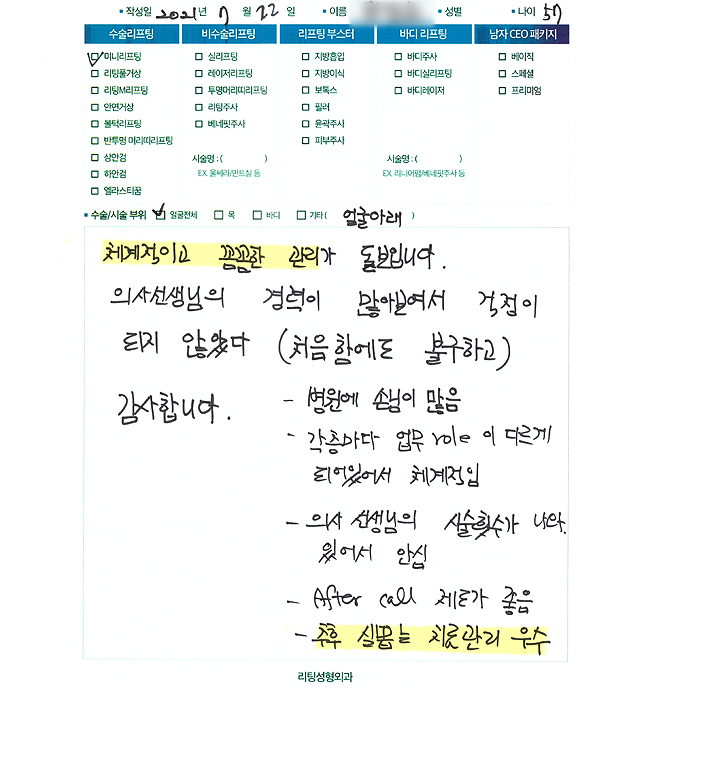 작성일 2021 년 7 월 22 일 이름 성별 나이 57
수술리프팅 비수술리프팅 리프팅 부스터 바디 리프팅 남자 CEO 패키지
미니리프팅 실리프팅 지방흡입 바디주사 베이직
리팅풀거상 레이저리프팅 지방이식 바디실리프팅 스페셜
리팅M리프팅 투명머리띠리프팅 보톡스 바디레이저 프리미엄
안면거상 리팅주사 필러
볼턱리프팅 베네핏주사 윤곽주사
반투명 머리띠리프팅 피부주사
상안검 시술명 : ( ) 시술명 : ( )
하안검 EX. 울쎄라/민트실 등 EX. 리니어펌/베네핏주사 등
엘라스티꿈
수술/시술 부위 얼굴전체 목 바디 기타 ( 얼굴아래 )
체계적이고 꼼꼼한 관리가 돋보입니다.
의사선생님의 경력이 많아보여서 걱정이
되지 않았다 (처음함에도 불구하고)
감사합니다.
- 병원에 손님이 많음
- 각층마다 업무 role 이 다르게
되어있어서 체계적임
- 의사 선생님의 시술횟수가 나와
있어서 안심
- After call 제도가 좋음
- 추후 실뽑는 치료관리 우수
리팅성형외과